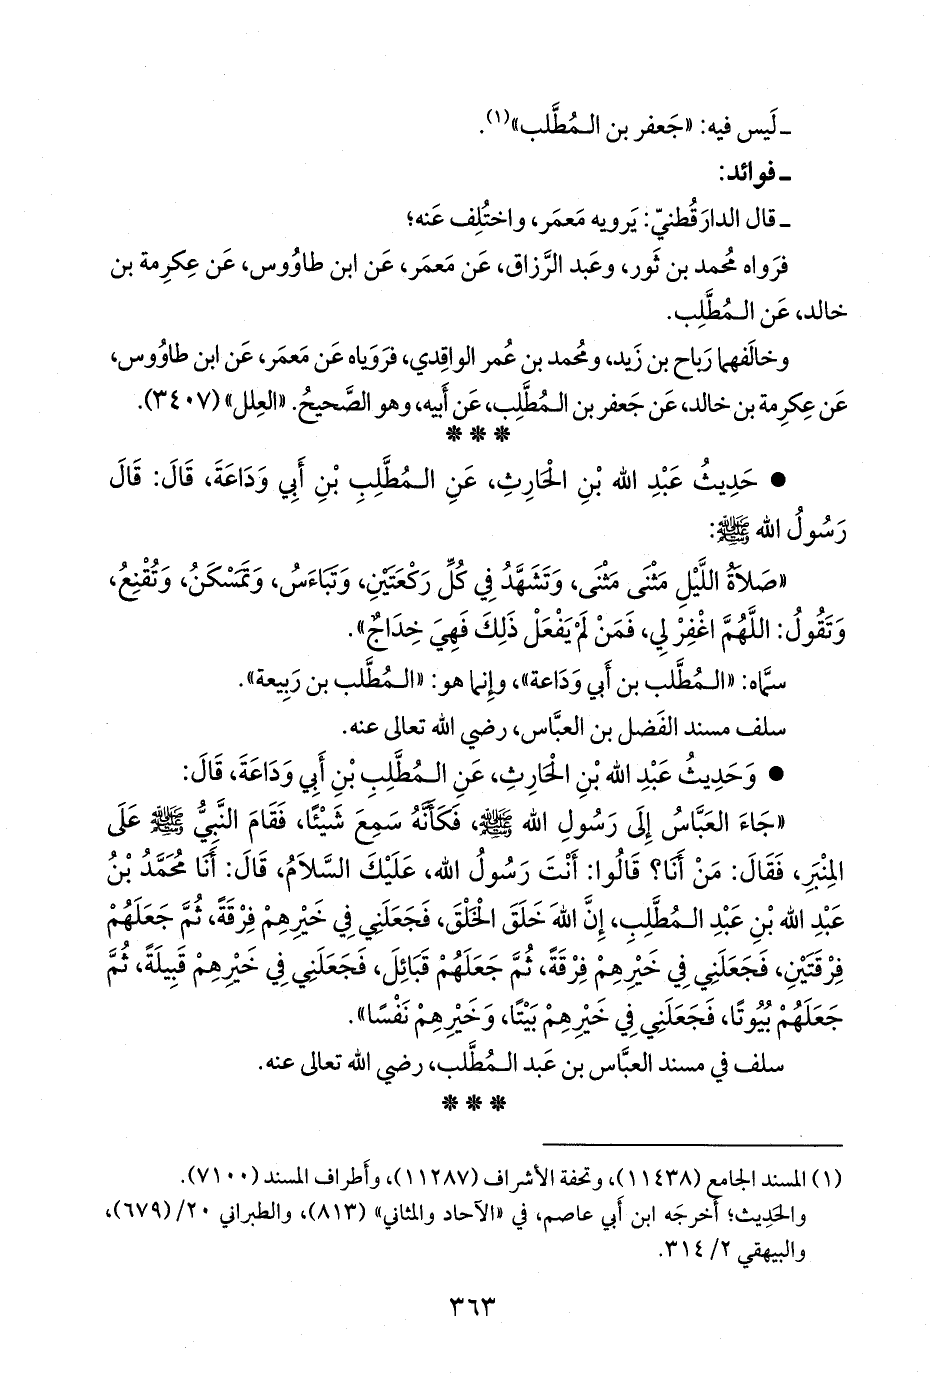 ـ لَيس فيه: «جَعفر بن الـمُطَّلب»(١).
ـ فوائد:
ـ قال الدارَقُطنيّ: يَرويه مَعمَر، واختُلِف عَنه؛
فرَواه مُحمد بن ثَور، وعَبد الرَّزاق، عَن مَعمَر، عَن ابن طاوُوس، عَن عِكرِمة بن
خالد، عَن الـمُطَّلِب.
وخالَفهما رَباح بن زَيد، ومُحمد بن عُمر الواقِدي، فرَوَياه عَن مَعمَر، عَن ابن طاوُوس،
عَن عِكرِمة بن خالد، عَن جَعفر بن الـمُطَّلِب، عَن أَبيه، وهو الصَّحيحُ. «العِلل» (٣٤٠٧).
***
● حَدِيثُ عَبْدِ الله بْنِ الْحَارِثِ، عَنِ الـمُطَّلِبِ بْنِ أَبِي وَدَاعَةَ، قَالَ: قَالَ
رَسُولُ الله ﷺ:
«صَلاَةُ اللَّيْلِ مَثْنَى مَثْنَى، وَتَشَهَّدُ فِي كُلِّ رَكْعَتَيْنِ، وَتَبَاءَسُ، وَتَمَسْكَنُ، وَتُقْنِعُ،
وَتَقُولُ: اللَّهُمَّ اغْفِرْ لِي، فَمَنْ لَمْ يَفْعَلْ ذَلِكَ فَهِيَ خِدَاجٌ».
سمَّاه: «الـمُطَّلب بن أَبي وَدَاعة»، وإِنما هو: «الـمُطَّلب بن رَبِيعة».
سلف مسند الفَضل بن العبَّاس، رضي الله تعالى عنه.
● وَحَدِيثُ عَبْدِ الله بْنِ الْحَارِثِ، عَنِ الـمُطَّلِبِ بْنِ أَبِي وَدَاعَةَ، قَالَ:
«جَاءَ العَبَّاسُ إِلَى رَسُولِ الله ﷺ، فَكَأَنَّهُ سَمِعَ شَيْئًا، فَقَامَ النَّبِيُّ ﷺ عَلَى
المِنْبَرِ، فَقَالَ: مَنْ أَنَا؟ قَالُوا: أَنْتَ رَسُولُ الله، عَلَيْكَ السَّلاَمُ، قَالَ: أَنَا مُحَمَّدُ بْنُ
عَبْدِ الله بْنِ عَبْدِ الـمُطَّلِبِ، إِنَّ اللهَ خَلَقَ الْخَلْقَ، فَجَعَلَنِي فِي خَيْرِهِمْ فِرْقَةً، ثُمَّ جَعَلَهُمْ
فِرْقَتَيْنِ، فَجَعَلَنِي فِي خَيْرِهِمْ فِرْقَةً، ثُمَّ جَعَلَهُمْ قَبَائِلَ، فَجَعَلَنِي فِي خَيْرِهِمْ قَبِيلَةً، ثُمَّ
جَعَلَهُمْ بُيُوتًا، فَجَعَلَنِي فِي خَيْرِهِمْ بَيْتًا، وَخَيْرِهِمْ نَفْسًا».
سلف في مسند العبَّاس بن عَبد الـمُطَّلب، رضي الله تعالى عنه.
***
(١) المسند الجامع (١١٤٣٨)، وتحفة الأشراف (١١٢٨٧)، وأَطراف المسند (٧١٠٠).
والحَدِيث؛ أَخرجَه ابن أَبي عاصم، في «الآحاد والمثاني» (٨١٣)، والطبراني ٢٠/ (٦٧٩)،
والبيهقي ٢/ ٣١٤.
٣٦٣